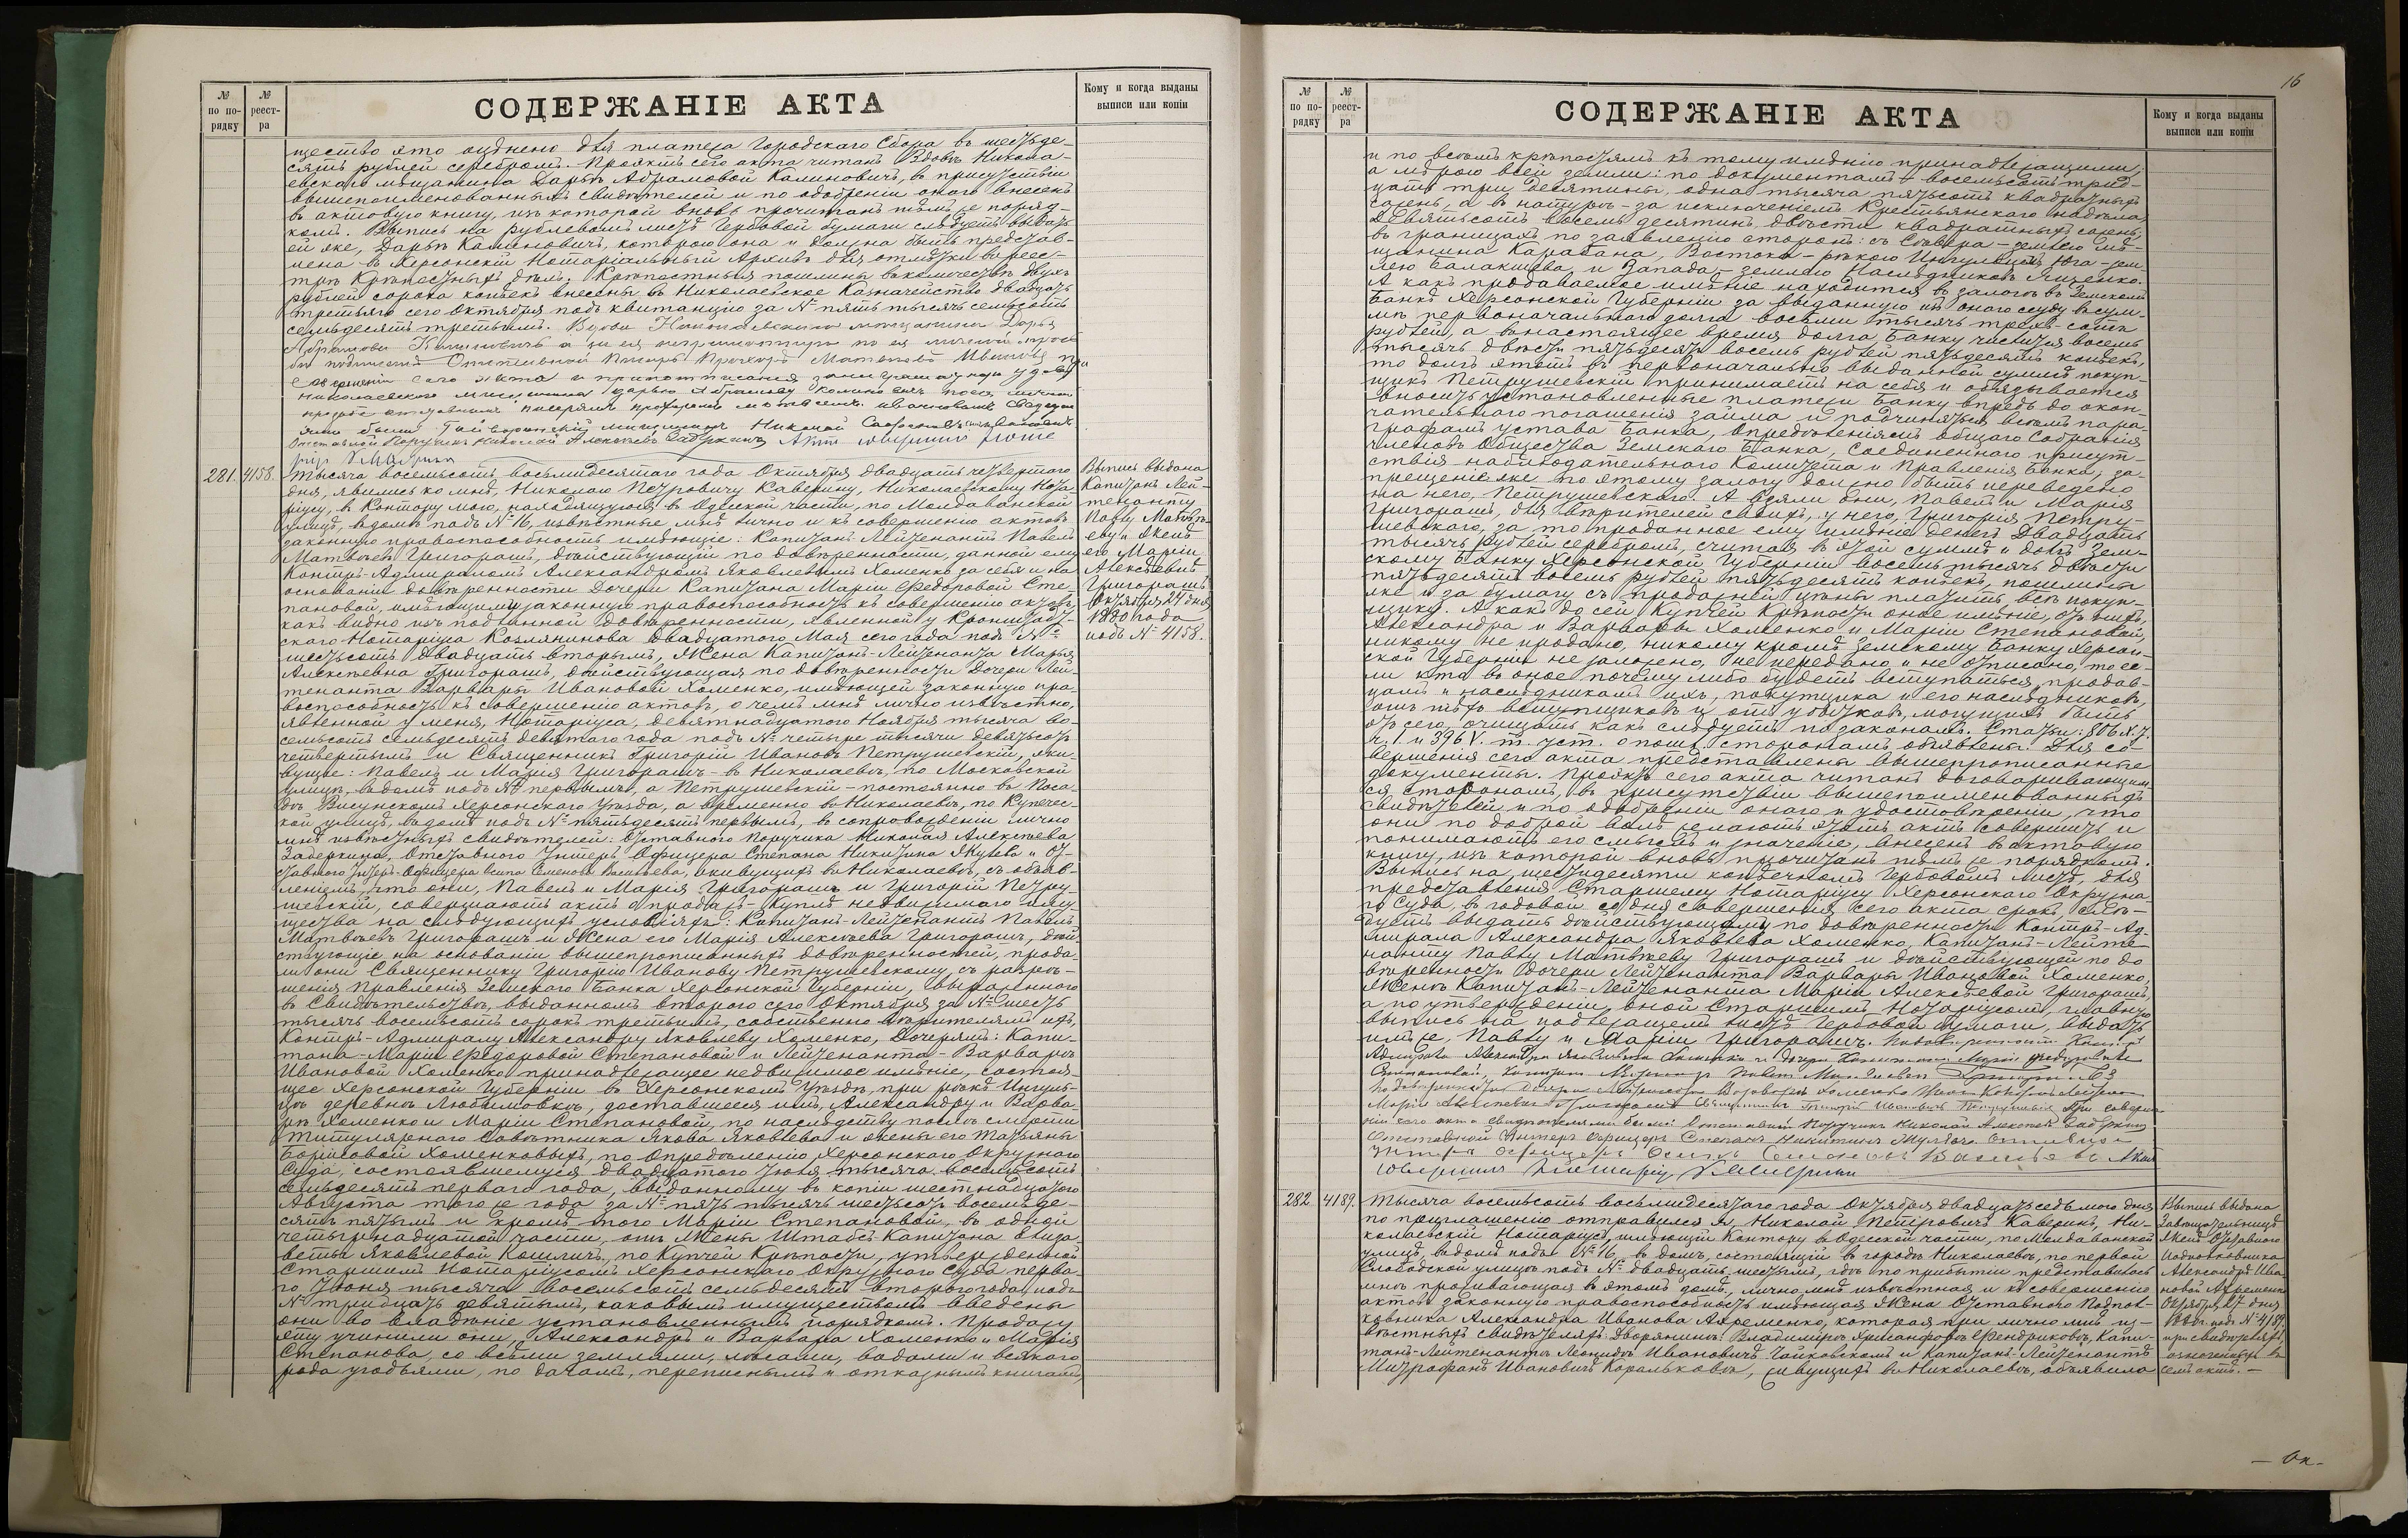 № по по-рядку
№ реест-ра
СОДЕРЖАНІЕ АКТА
Кому и когда выданы выписи или копіи
щество это оцѣнено для платежа Городскаго Сбора въ шестьде-
сятъ рублей серебромъ. Проэктъ сего акта читанъ Вдовѣ Никола-
евскаго мѣщанина Дарьѣ Абрамовой Калиновичъ, въ присутствіи
вышепоименованныхъ свидѣтелей и по одобреніи онаго внесенъ
въ актовую книгу, изъ которой вновь прочитанъ тѣмъ же поряд-
комъ. Выпись на рублевомъ листѣ Гербовой бумаги слѣдуетъ выдать
ей же, Дарьѣ Калиновичъ, которою она и должна быть представ-
лена въ Херсонскій Нотаріальный Архивъ для отмѣтки въ реес-
трѣ Крѣпостныхъ дѣлъ. Крѣпостныя пошлины въ количествѣ двухъ
рублей сорока копѣекъ внесены въ Николаевское Казначейство двадцать
третьяго сего Октября подъ квитанцію за № пять тысячъ семьсотъ
семьдесятъ третьимъ. Вдова Николаевскаго мѣщанина Дарья
Абрамова Калиновичъ а за ея неграмотную по ея личной прось-
бѣ подписалъ Отставной Писарь Прохоръ Матвѣевъ Ивановъ При
совершеніи сего акта и при подписаніи за неграмотную вдову
николаевскаго мѣщанина дарью Абрамову калиновичъ по ея личной
прозьбѣ отставнымъ писарямъ прохоромъ матвеевымъ ивановымъ свидетеле
ями были: мѣщанинъ Николай
Отставной Поручикъ Николай Алексеевъ Задеркинъ Актъ совершилъ Нота-
ріусъ Каверинъ
281. 4158. Тысяча восемьсотъ восьмидесятаго года Октября двадцать четвертаго
дня, явились ко мнѣ, Николаю Петровичу Каверину, Николаевскому Нота-
ріусу, въ Контору мою, находящуюся въ Одесской части, по Молдаванской
улицѣ, въ домѣ подъ № 16, извѣстные мнѣ лично и къ совершенію актовъ
законную правоспособность имѣющіе: Капитанъ-Лейтенантъ Павелъ
Матвѣевъ Григорашъ, дѣйствующій по довѣренности, данной ему
Контръ-Адмираломъ Александромъ Яковлевымъ Хоменко за себя и на
основаніи довѣренности Дочери Капитана Маріи Федоровой Сте-
пановой, имѣющими законную правоспособность къ совершенію актовъ,
какъ видно изъ подлинной довѣренности, явленной у Кронштадт-
скаго Нотаріуса Козлянинова двадцатаго Мая сего года подъ №
шестьсотъ двадцать вторымъ, Жена Капитанъ-Лейтенанта Марья
Алексѣевна Григорашъ, дѣйствующая по довѣренности Дочери Лей-
тенанта Варвары Ивановой Хоменко, имѣющей законную пра-
воспособность къ совершенію актовъ, о чемъ мнѣ лично извѣстно,
явленной у меня, Нотаріуса, девятнадцатаго Ноября тысяча во-
семьсотъ семьдесятъ девятаго года подъ № четыре тысячи девятьсотъ
четвертымъ и Священникъ Григорій Ивановъ Петрушевскій, жи-
вущіе: Павелъ и Марія Григорашъ – въ Николаевѣ, по Московской
улицѣ, въ домѣ подъ № первымъ, а Петрушевскій – постоянно въ Поса-
дѣ Висунскомъ Херсонскаго Уѣзда, а временно въ Николаевѣ, по Купечес-
кой улицѣ, въ домѣ подъ № пятьдесятъ первымъ, въ сопровожденіи лично
мнѣ извѣстныхъ свидѣтелей: Отставнаго Поручика Николая Алексѣева
Задеркина, Отставнаго Унтеръ-Офицера Степана Никитина Якушева и От-
ставного Унтеръ-Офицера Осипа Семенова Васильева, живущихъ въ Николаевѣ, съ объяв-
леніемъ, что они, Павелъ и Марія Григорашъ и Григорій Петру-
шевскій, совершаютъ актъ о продажѣ-куплѣ недвижимаго иму-
щества на слѣдующихъ условіяхъ: Капитанъ-Лейтенантъ Павелъ
Матвѣевъ Григорашъ и Жена его Марія Алексѣева Григорашъ, дѣй-
ствующіе на основаніи вышепрописанныхъ довѣренностей, прода-
ли они Священнику Григорію Иванову Петрушевскому, съ разрѣ-
шенія Правленія Земскаго Банка Херсонской Губерніи, выраженнаго
въ Свидѣтельствѣ, выданномъ втораго сего Октября за № шесть
тысячъ восемьсотъ сорокъ третьимъ, собственно довѣрителямъ ихъ,
Контръ-Адмиралу Александру Яковлеву Хоменко, Дочерямъ: Капи-
тана – Маріи Федоровой Степановой и Лейтенанта – Варварѣ
Ивановой Хоменко принадлежащее недвижимое имѣніе, состоя-
щее Херсонской Губерніи въ Херсонскомъ Уѣздѣ, при рѣкѣ Ингуль-
цѣ деревнѣ Любимовкѣ, доставшееся имъ, Александру и Варва-
рѣ Хоменко и Маріи Степановой, по наслѣдству послѣ смерти
Титулярнаго Совѣтника Якова Яковлева и жены его Татьяны
Борисовой Хоменковыхъ, по Опредѣленію Херсонскаго Окружнаго
Суда, состоявшемуся двадцатаго Іюля тысяча восемьсотъ
семьдесятъ перваго года, выданному въ копіи шестнадцатаго
Августа того же года за № пять тысячъ шестьсотъ восемьде-
сятъ пятымъ и кромѣ того Маріи Степановой, въ одной
четырнадцатой части, отъ Жены Штабсъ-Капитана Елиза-
веты Яковлевой Кошличъ, по Купчей Крѣпости, утвержденной
Старшимъ Нотаріусомъ Херсонскаго Окружнаго Суда перва-
го Іюня тысяча восемьсотъ семьдесятъ втораго года подъ
№ тридцать девятымъ, каковымъ имуществомъ введены
они во владѣніе установленнымъ порядкомъ. Продажу
эту учинили они, Александръ и Варвара Хоменко и Марія
Степанова, со всѣми землями, лѣсами, водами и всякаго
рода угодьями, по дачамъ, переписнымъ и отказнымъ книгамъ,
Выпись выдана
Капитанъ Лей-
тенанту
Павлу Матвѣ-
еву и Женѣ
его Маріи
Алексѣевой
Григорашъ
Октября 24 дня
1880 года
подъ № 4158.
16
№ по по-рядку
№ реест-ра
СОДЕРЖАНІЕ АКТА
Кому и когда выданы выписи или копіи
и по всѣмъ крѣпостямъ къ тому имѣнію принадлежащими,
а мѣрою всей земли: по документамъ – восемьсотъ трид-
цать три десятины, одна тысяча пятьсотъ квадратныхъ
сажень, а въ натурѣ – за исключеніемъ Крестьянскаго надѣла,
девятьсотъ восемь десятинъ двѣсти квадратныхъ сажень,
въ границахъ по заявленію сторонъ: съ Сѣвера – землею мѣ-
щанина Карабана, Востока – рѣкою Ингульцемъ, Юга – зем-
лею Балакшева и Запада – землею Наслѣдниковъ Яценко.
А какъ продаваемое имѣніе находится въ залогѣ въ Земскомъ
Банкѣ Херсонской Губерніи за выданную изъ онаго ссуду въ сум-
мѣ первоначальнаго долга восьми тысячъ трехъ-сотъ
рублей, а въ настоящее время долга Банку числится восемь
тысячъ двѣсти пятьдесятъ восемь рублей пятьдесятъ копѣекъ,
то долгъ этотъ въ первоначально выданной суммѣ покуп-
щикъ Петрушевскій принимаетъ на себя и обязывается
вносить установленные платежи Банку впредь до окон-
чательнаго погашенія займа и подчиняться всѣмъ пара-
графамъ устава Банка, Опредѣленіямъ Общаго Собранія
членовъ Общества Земскаго Банка, Соединеннаго присут-
ствія наблюдательнаго Комитета и Правленія Банка; за-
прещеніе же по этому залогу должно быть переведено
на него, Петрушевскаго. А взяли они, Павелъ и Марія
Григорашъ, для вѣрителей своихъ, у него, Григорія Петру-
шевскаго, за то проданное ему имѣніе денегъ двадцать
тысячъ рублей серебромъ, считая въ этой суммѣ и долгъ Зем-
скому Банку Херсонской Губерніи восемь тысячъ двѣсти
пятьдесятъ восемь рублей пятьдесятъ копѣекъ, пошлины
же и за бумагу съ продажной цѣны платить всѣ покуп-
щику. А какъ до сей Купчей Крѣпости оное имѣніе, отъ нихъ,
Александра и Варвары Хоменко и Маріи Степановой,
никому не продано, никому кромѣ Земскому Банку Херсон-
ской Губерніи не заложено, не передано и не отписано, то ес-
ли кто въ оное почему либо будетъ вступаться, продав-
цамъ и наслѣдникамъ ихъ, покупщика и его наслѣдниковъ,
отъ тѣхъ вступщиковъ и отъ убытковъ, могущихъ быть
отъ сего, очищать какъ слѣдуетъ по законамъ. Статьи: 806 X. т.
ч. I и 396 V. т. уст. о пошл. сторонамъ объявлены. Для со-
вершенія сего акта представлены вышепрописанные
документы. Проэктъ сего акта читанъ договаривающим-
ся сторонамъ, въ присутствіи вышепоименованныхъ
свидѣтелей и по одобреніи онаго и удостовѣреніи, что
они по доброй волѣ желаютъ этотъ актъ совершить и
понимаютъ его смыслъ и значеніе, внесенъ въ актовую
книгу, изъ которой вновь прочитанъ тѣмъ же порядкомъ.
Выпись на шестидесяти копѣечномъ Гербовомъ листѣ, для
представленія Старшему Нотаріусу Херсонскаго Окружна-
го Суда, въ годовой со дня совершенія сего акта срокъ, слѣ-
дуетъ выдать дѣйствующимъ по довѣренности Контръ-Ад-
мирала Александра Яковлева Хоменко, Капитанъ-Лейте-
нанту Павлу Матвѣеву Григорашъ и дѣйствующей по до-
вѣренности Дочери Лейтенанта Варвары Ивановой Хоменко,
Женѣ Капитанъ-Лейтенанта Маріи Алексѣевой Григорашъ,
а по утвержденіи оной Старшимъ Нотаріусомъ, главную
выпись на подлежащемъ листѣ Гербовой бумаги, выдать
имъ же, Павлу и Маріи Григорашъ. По довѣренности Контръ
Адмирала Александра Яковлевича Хоменко и дочери Капитана Маріи Федоровны
Степановой, Капитанъ Лейтенантъ Павелъ Матвѣевъ Григорашъ
По довѣренности дочери Лейтенанта Варвары Хоменко Жена Капитанъ Лейтенанта
Марія Алексѣевна Григорашъ Священникъ Григорій Ивановичъ Петрушевскій При соверше-
ніи сего акта свидѣтелями были: Отставной Поручикъ Николай Алексѣевъ Задеркинъ
Отставной Унтеръ Офицеръ Степанъ Никитинъ Якушевъ. Отставной
унтеръ офицеръ Осипъ Семеновъ Васильевъ Актъ
совершилъ Нотаріусъ Каверинъ
282 4189. Тысяча восемьсотъ восьмидесятаго года Октября двадцать седьмаго дня
по приглашенію отправился я, Николай Петровичъ Каверинъ, Ни-
колаевскій Нотаріусъ, имѣющій Контору въ Одесской части, по Молдаванской
улицѣ, въ домѣ подъ № 16, въ домъ, состоящій въ городѣ Николаевѣ, по первой
Слободской улицѣ подъ № двадцать шестымъ, гдѣ по прибытіи представилась
мнѣ проживающая въ этомъ домѣ, лично мнѣ извѣстная и къ совершенію
актовъ законную правоспособность имѣющая Жена Отставнаго Подпол-
ковника Александра Иванова Ахременко, которая при лично мнѣ из-
вѣстныхъ свидѣтеляхъ: Дворянинѣ Владимірѣ Хрисанфовѣ Фендриковѣ, Капи-
танъ-Лейтенантѣ Леонидѣ Ивановичѣ Чайковскомъ и Капитанъ-Лейтенантѣ
Митрофанѣ Ивановичѣ Корольковѣ, живущихъ въ Николаевѣ, объявила
Выпись выдана
Завѣщательницѣ
Женѣ Отставного
Подполковника
Александрѣ Ива-
новой Ахременко
Октября 27 дня
1880 г. подъ № 4189,
при свидѣтеляхъ,
означенныхъ въ
семъ актѣ. –